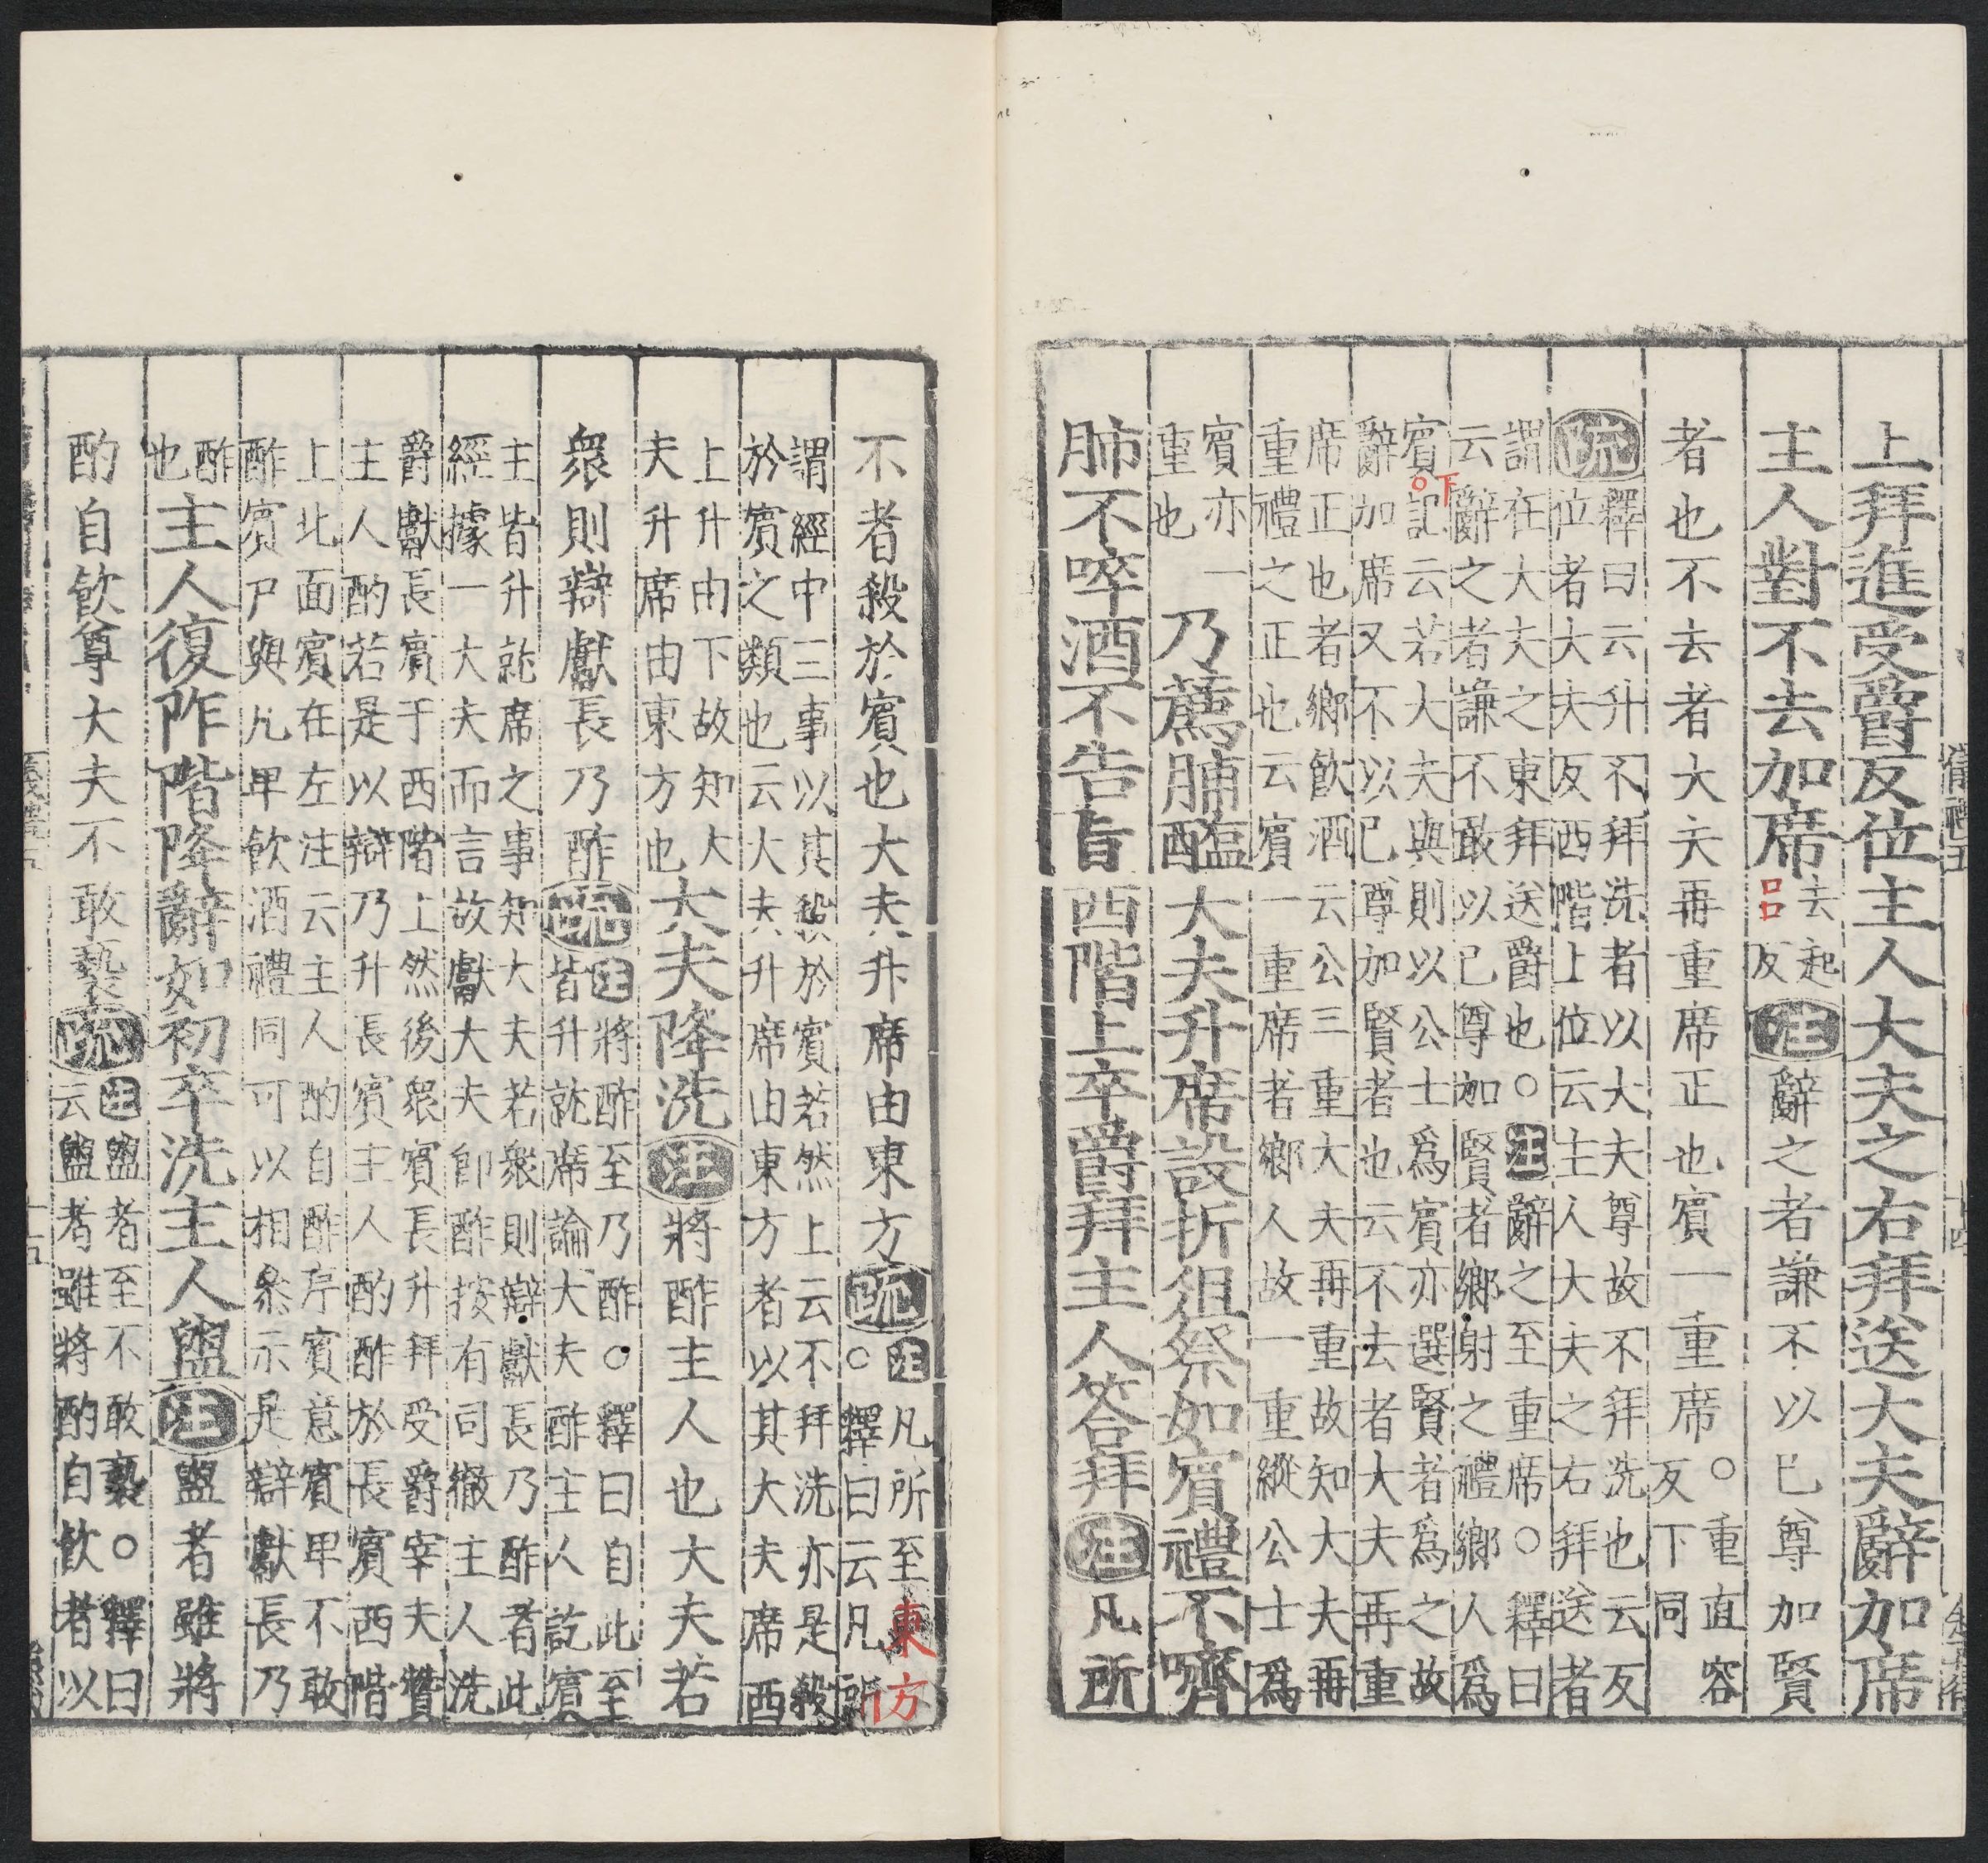 上拜進受爵反位主人大夫之右拜送大夫辭加席
主人對不去加席
去起
呂反
注
辭之者謙不以已尊加賢
者也不去者大夫再重席正也賓一重席
○重直容
反下同
疏
釋曰云升不拜洗者以大夫尊故不拜洗也云反
位者大夫反西階上位云主人大夫之右拜送者
謂在大夫之東拜送爵也○注辭之至重席○釋曰
云辭之者謙不敢以已尊加賢者鄉射之禮鄉人爲
下
賓○記云若大夫與則以公士爲賓亦選賢者爲之故
辭加席又不以已尊加賢者也云不去者大夫再重
席正也者鄉飲酒云公三重大夫再重故知大夫再
重禮之正也云賓一重席者鄉人故一重縱公士爲
賓亦一
重也
乃薦脯醢大夫升席設折俎祭如賓禮不嚌
肺不啐酒不告旨西階上卒爵拜主人答拜
注
凡所
不者殺於賓也大夫升席由東方
疏
注凡所至東方
○釋曰云凡所
謂經中三事以其殺於賓若然上云不拜洗亦是殺
於賓之類也云大夫升席由東方者以其大夫席西
上升由下故知大
夫升席由東方也
大夫降洗
注
將酢主人也大夫若
衆則辯獻長乃酢
疏
注將酢至乃酢○釋曰自此至
皆升就席論大夫酢主人訖賓
主皆升就席之事知大夫若衆則辯獻長乃酢者此
經據一大夫而言故獻大夫即酢按有司徹主人洗
爵獻長賓于西階上然後衆賓長升拜受爵宰夫贊
主人酌若是以辯乃升長賓主人酌酢於長賓西階
上北面賓在左注云主人酌自酢序賓意賓卑不敢
酢賓尸與凡卑飲酒禮同可以相叅示是辯獻長乃
酢
也
主人復阼階降辭如初卒洗主人盥
注
盥者雖將
酌自飲尊大夫不敢褻
疏
注盥者至不敢褻○釋曰
云盥者雖將酌自飲者以